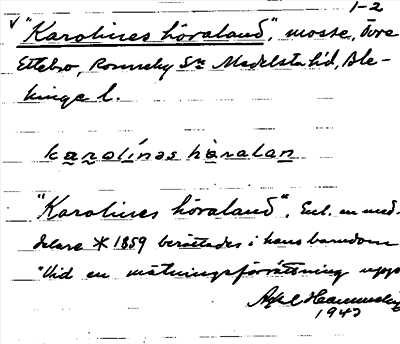 1-2
"Karolines höraland", mosse, Övre
Ettebro, Ronneby sn Medelsta hd, Ble-
kinge l.
karolínas hòralan
"Karolines höraland". Enl. en med-
delare * 1859 berättades i hans barndom
"Vid en mätningsförrättning upps
Axel
1947